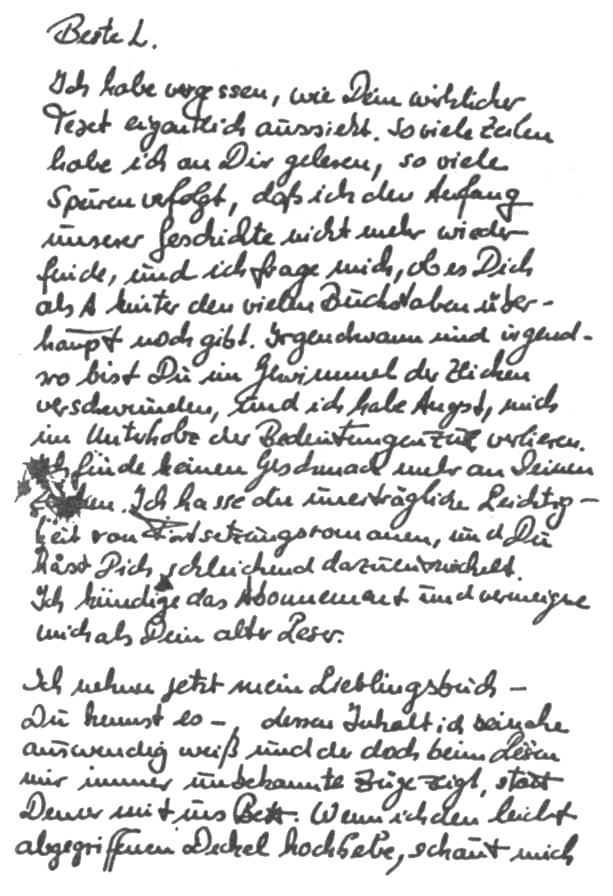 Beste L.
Ich habe vergessen, wie Dein wirklicher
Text eigentlich aussieht. So viele Zeilen
habe ich an Dir gelesen, so viele
Spuren verfolgt, daß ich den Anfang
unserer Geschichte nicht mehr wieder
finde, und ich frage mich, ob es Dich
als A hinter den vielen Buchstaben über-
haupt noch gibt. Irgendwann und irgend-
wo bist Du im Gewimmel der Zeichen
verschwunden, und ich habe Angst, mich
im Unterholz der Bedeutungen zu verlieren.
Ich finde keinen Geschmack mehr an Deinen
. Ich hasse die unerträgliche Leichtig-
keit von Fortsetzungsromanen, und Du
hast Dich schleichend dazu entwickelt.
Ich kündige das Abonnement und verneige
mich als Dein alter Leser.
Ich nehme jetzt mein Lieblingsbuch –
Du kennst es –, dessen Inhalt ich beinahe
auswendig weiß und der doch beim Lesen
mir immer unbekannte Züge zeigt, statt
Deiner mit ins Bett. Wenn ich den leicht
abgegriffenen Deckel hochhebe, schaut mich